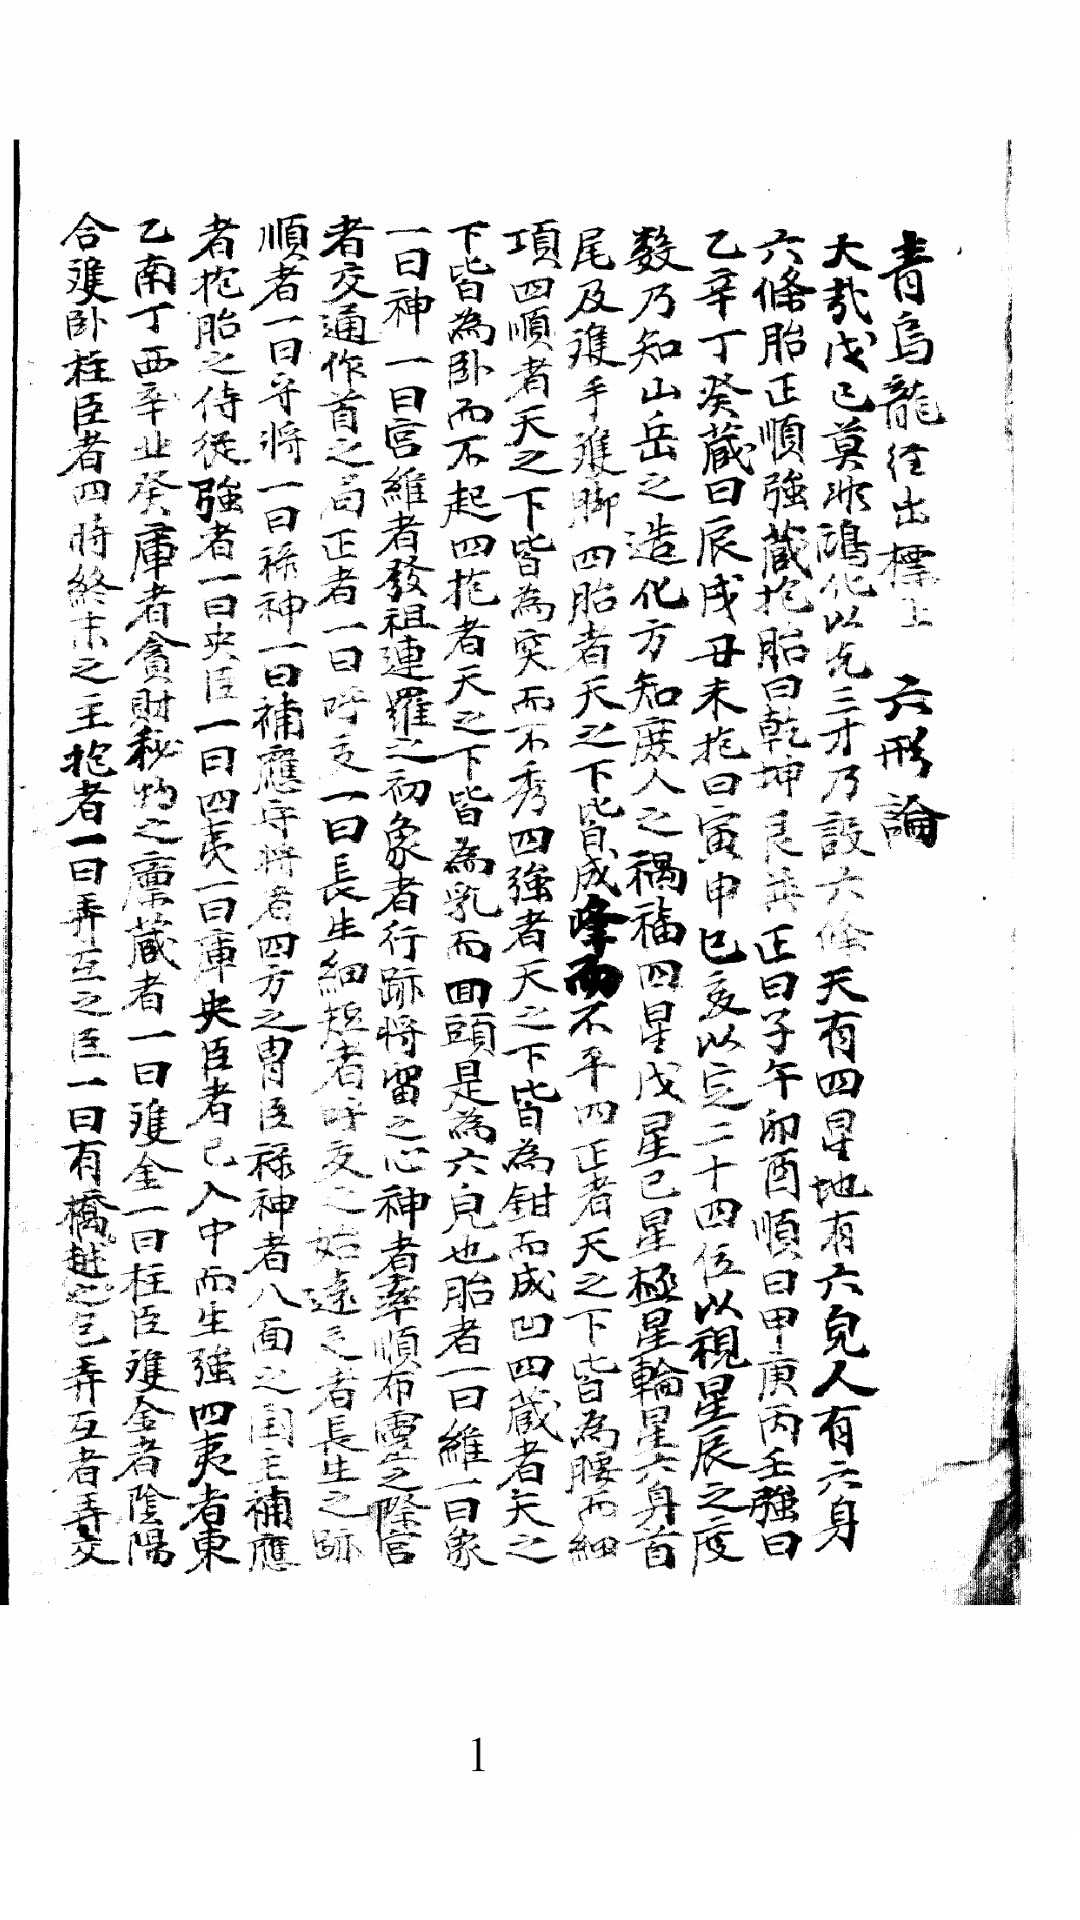 青烏龍経出標上　六形論
大哉戊己莫非鴻化以先三才乃設六條天有四星地有六皃人有六身
六條胎正順強蔵抱胎曰乾坤艮巽正曰子午卯酉順曰甲庚丙壬強曰
乙辛丁癸蔵曰辰戌丑未抱曰寅申巳亥以定二十四位以視星辰之度
数乃知山岳之造化方知庶人之禍福四星戊星己星極星輪星六身首
尾及䨇手䨇脚四胎者天之下皆成峰而不平四正者天之下皆為腰而細
項四順者天之下皆為突而不秀四強者天之下皆為鉗而成凹四蔵者天之
下皆為卧而不起四抱者天之下皆為乳而回頭是為六皃也胎者一曰維一曰象
一曰神一曰官維者發祖連羅之初象者行跡将留之心神者率順布霊之際官
者交通作首之局正者一曰呼交一曰長生細短者呼交之始遠之者長生之跡
順者一曰守将一曰禄神一曰補應守将者四方之胄臣禄神者八面之国主補應
者抱胎之侍従強者一曰央臣一曰四夷一曰庫央臣者己入中而生強四夷者東
乙南丁西辛北癸庫者貪財秘物之廩蔵者一曰䨇金一曰柱臣䨇金者陰陽
合䨇卧柱臣者四時終末之主抱者一曰弄互之臣一曰有橋越之乞弄互者弄交
1